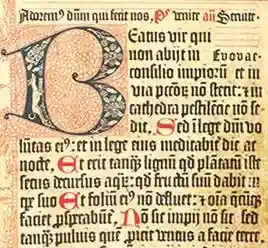 Adorem⁹ dūm qui fecit nos, p̄s venite añ Seruite.
Beatus vir qui
non abijt in Evovae
consilio impioru et in
via pccōꝝ nō stetit: ⁊ in
cathedra pestilēcie nō se
dit, Sed ī lege dn̄i vo
lūtas ei⁹: et in lege eius meditabit̄ die ac
nocte, Et erit tanq̄ lignū qd̄ plātatū ist
secus decursus aq̄ꝝ: qd̄ fructū suū dabit: in
tꝑe suo Et foliū ei⁹ nō defluet: ⁊ oīa q̄cūqꝫ
faciet ꝓsꝑabūt̄, Nō sic impij nō sic: sed
tanq̄ puluis quē ꝓicit ventus a facie terre.